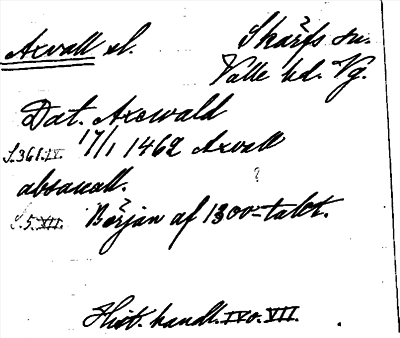 Axvall sl. Skärfs sn.
Valle hd. Vg.
Dat. Axewald
S.361.IV. 17/1 1462 Axvall
absavall. ?
S.5.VII. Början af 1300-talet.
Hist. handl. IV o. VII.